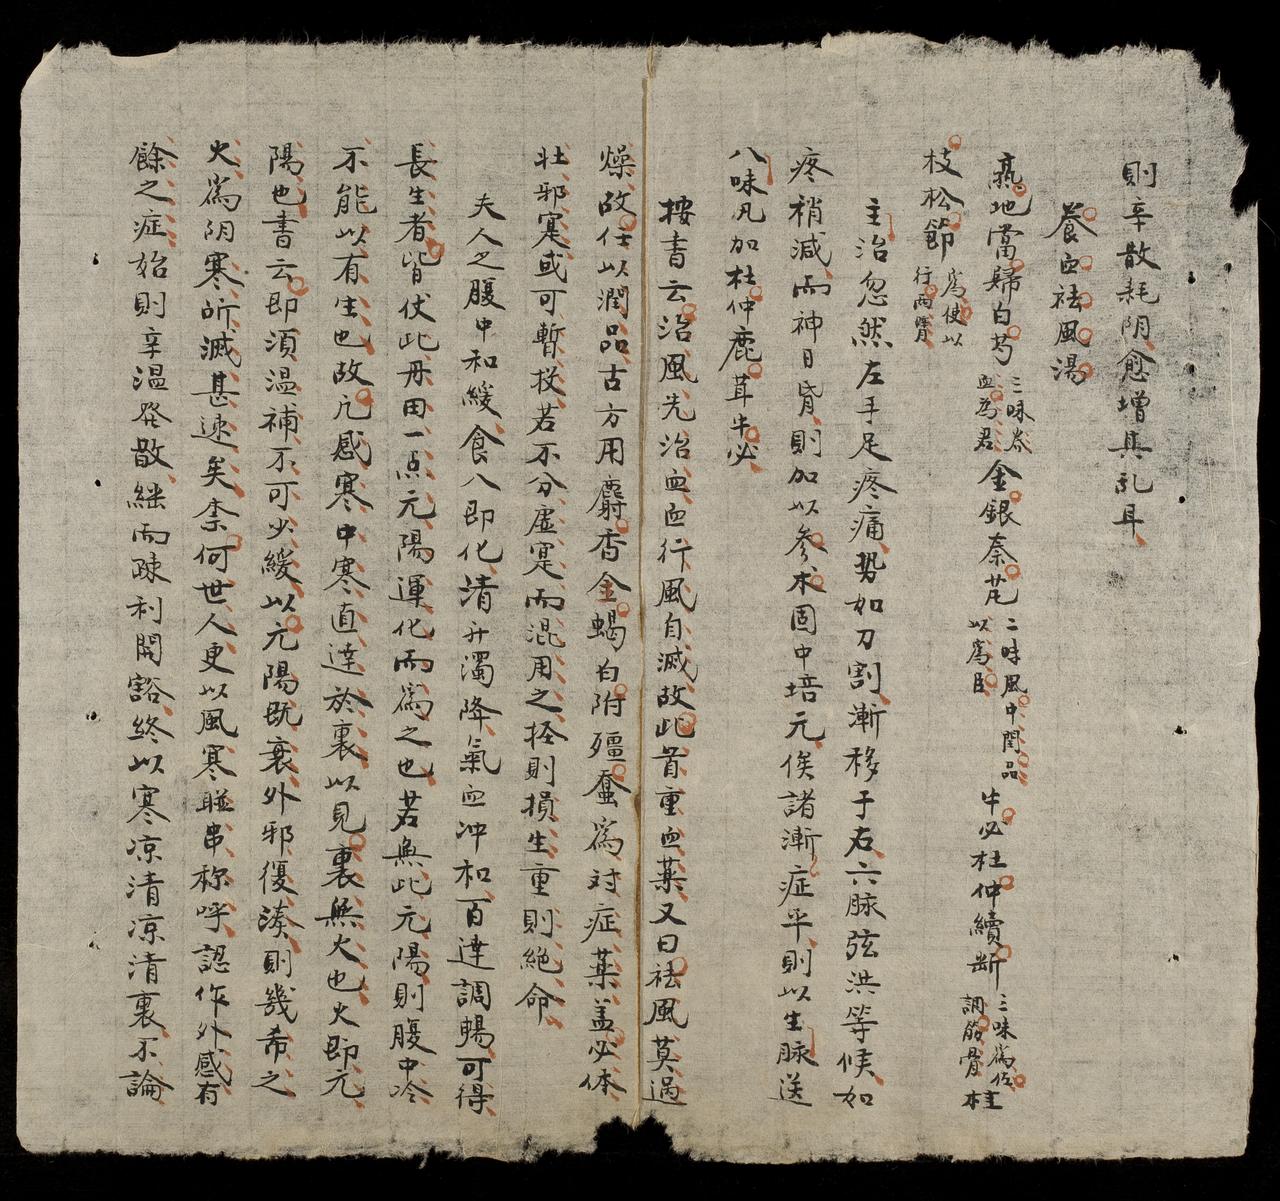 則辛散耗阴愈增其乱耳
養血祛風湯
熟地當歸白芍三味养血為君金銀秦艽二味風中閏品以為臣牛必杜仲續断三味為佐調筋骨桂
枝松節為使以行两臂
主治忽然左手足疼痛势如刀割漸移于右六脉弦洪等候如
疼稍減而神日昏則加以參术固中培元俟諸漸症平則以生脉送
八味凡加杜仲鹿茸牛必
按書云治風先治血血行風自滅故此首重血薬又曰祛風莫過
燥故仕以潤品古方用麝香金蝎白附殭蚕為対症薬盖必体
壮邪寔或可暫投若不分虚寔而混用之軽則損生重則絶命
夫人之腹中和緩食入即化清升濁降氣血冲和百達調暢可得
長生者皆仗此丹田一点元陽運化而為之也若無此元陽則腹中冷
不能以有生也故凡感寒中寒直達於裏以見裏無火也火即元
陽也書云即須温補不可少緩以元陽既衰外邪復湊則幾希之
火為阴寒所滅甚速矣柰何世人更以風寒聮串称呼認作外感有
餘之症始則辛温発散継而疎利開豁終以寒凉清凉清裏不論